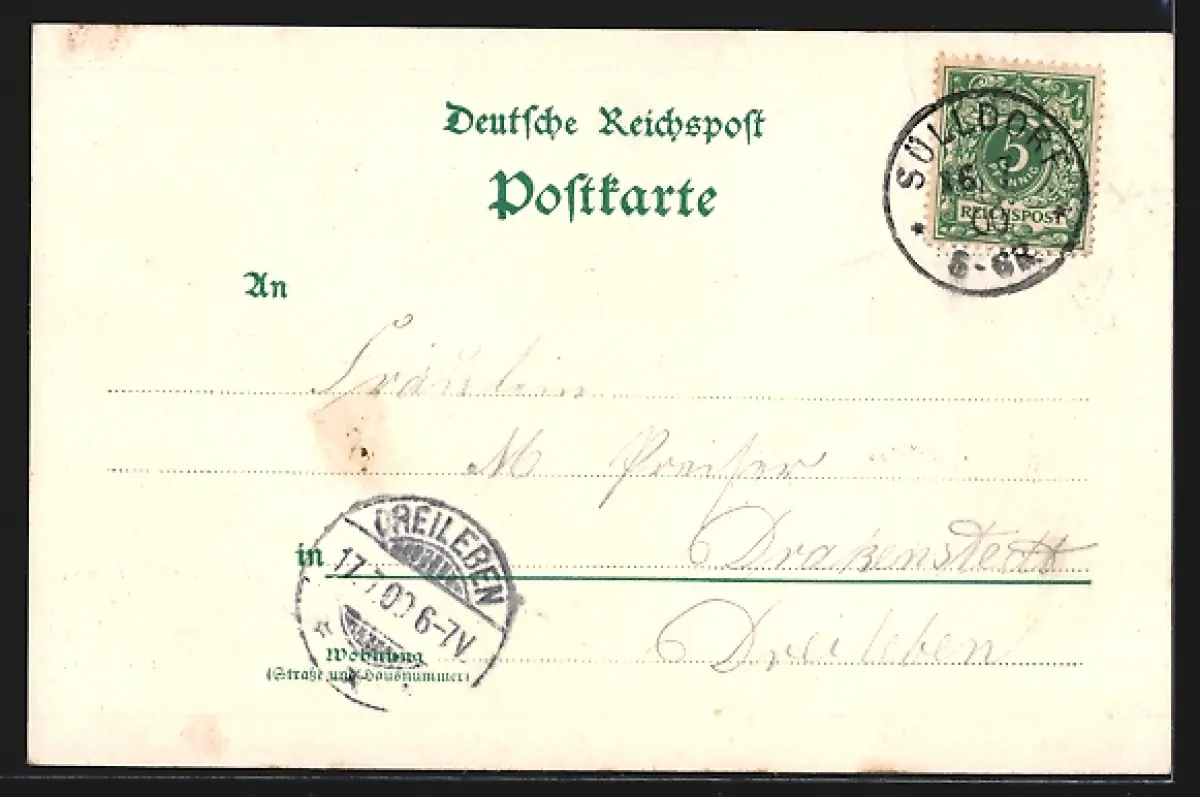 Deutsche Reichspost
Postkarte
SÜLLDORF
16. 7
00
6-6N.
5
PFENNIG
REICHSPOST
An
Fräulein
M Preifer
in Drakenstedt
Dreileben
DREILEBEN
17.7.00 6-7V
Wohnung
(Straße und Hausnummer)